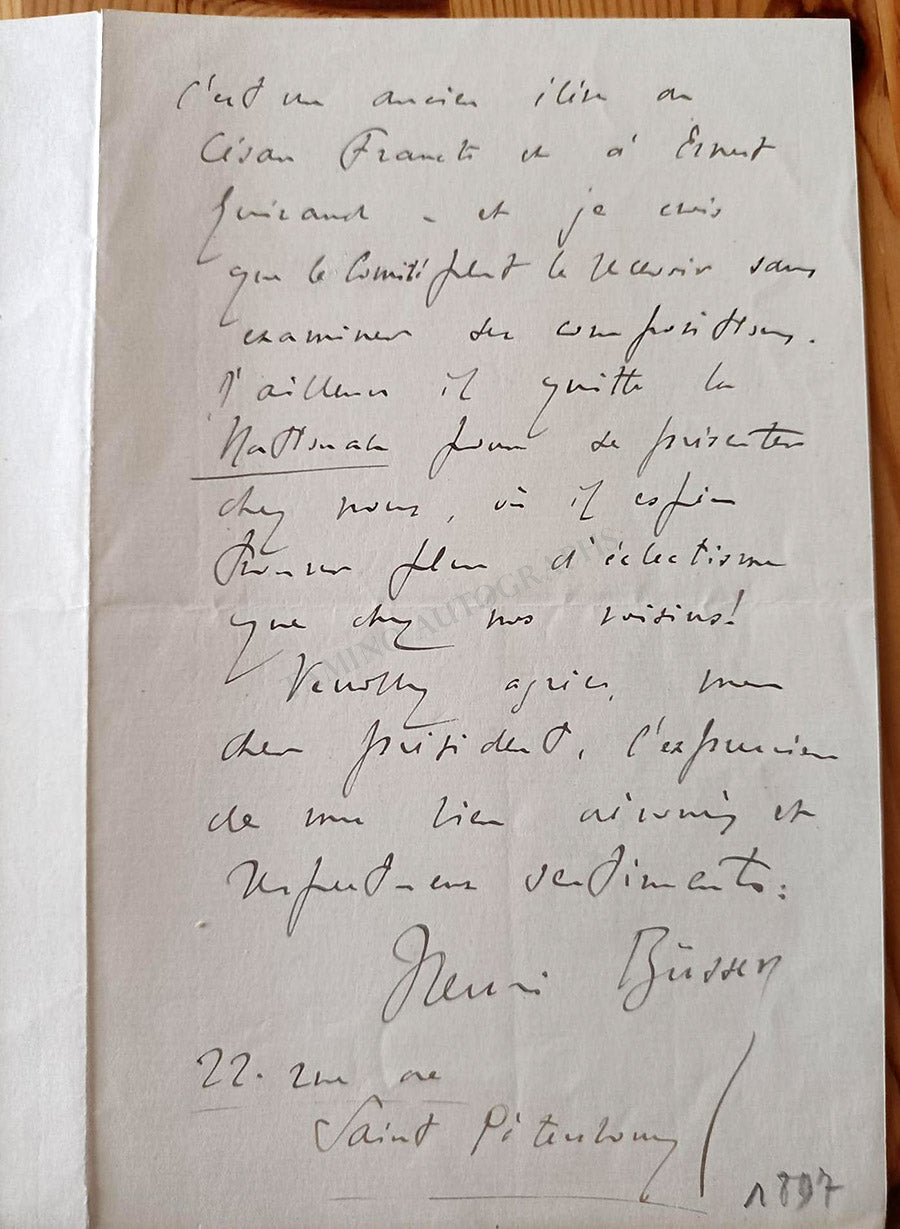 C'est un ancien élève de
César Franck et d'Ernest
Guiraud – et je crois
que le Comité peut le recevoir sans
examiner ses compositions.
D'ailleurs il quitte la
Nationale pour se présenter
chez nous, où il espère
trouver plus d'éclectisme
que chez nos voisins!
Veuillez agréer, mon
cher président, l'expression
de mes bien dévoués et
respectueux sentiments.
Henri Büsser
22. rue de
Saint Pétersbourg
1897
TAMINO AUTOGRAPHS